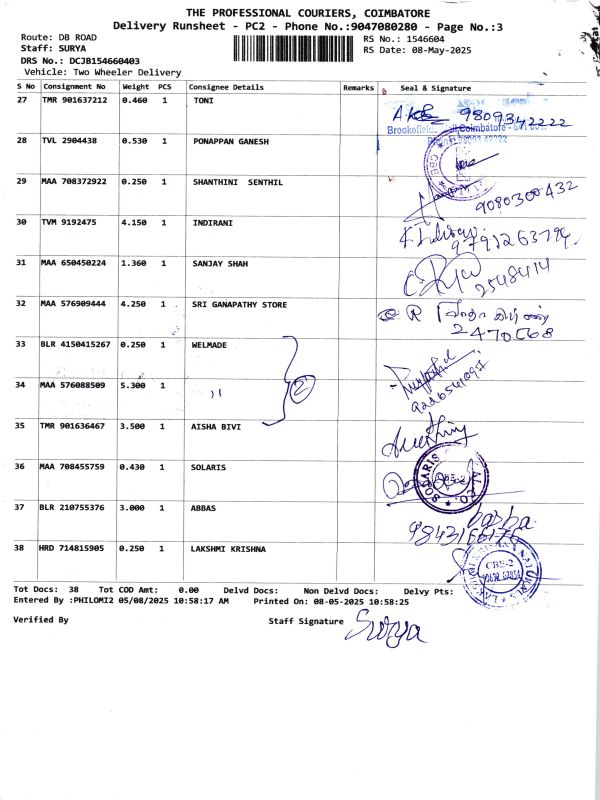 THE PROFESSIONAL COURIERS, COIMBATORE
Delivery Runsheet - PC2 - Phone No.:9047080280 - Page No.:3
Route: DB ROAD
RS No.: 1546604
Staff: SURYA
RS Date: 08-May-2025
DRS No.: DCJB154660403
Vehicle: Two Wheeler Delivery
S No Consignment No Weight PCS Consignee Details Remarks Seal & Signature
27 TMR 901637212 0.460 1 TONI 9809342222
Brookefields Coimbatore
28 TVL 2904438 0.530 1 PONAPPAN GANESH
29 MAA 708372922 0.250 1 SHANTHINI SENTHIL 9080300432
30 TVM 9192475 4.150 1 INDIRANI
31 MAA 650450224 1.360 1 SANJAY SHAH 2548414
32 MAA 576909444 4.250 1 SRI GANAPATHY STORE
2470668
33 BLR 4150415267 0.250 1 WELMADE
34 MAA 576088509 5.300 1 〃 2
35 TMR 901636467 3.500 1 AISHA BIVI
36 MAA 708455759 0.430 1 SOLARIS SOLARIS
37 BLR 210755376 3.000 1 ABBAS
38 HRD 714815905 0.250 1 LAKSHMI KRISHNA CBE-2
Tot Docs: 38 Tot COD Amt: 0.00 Delvd Docs: Non Delvd Docs: Delvy Pts:
Entered By :PHILOMI2 05/08/2025 10:58:17 AM Printed On: 08-05-2025 10:58:25
Verified By
Staff Signature Surya